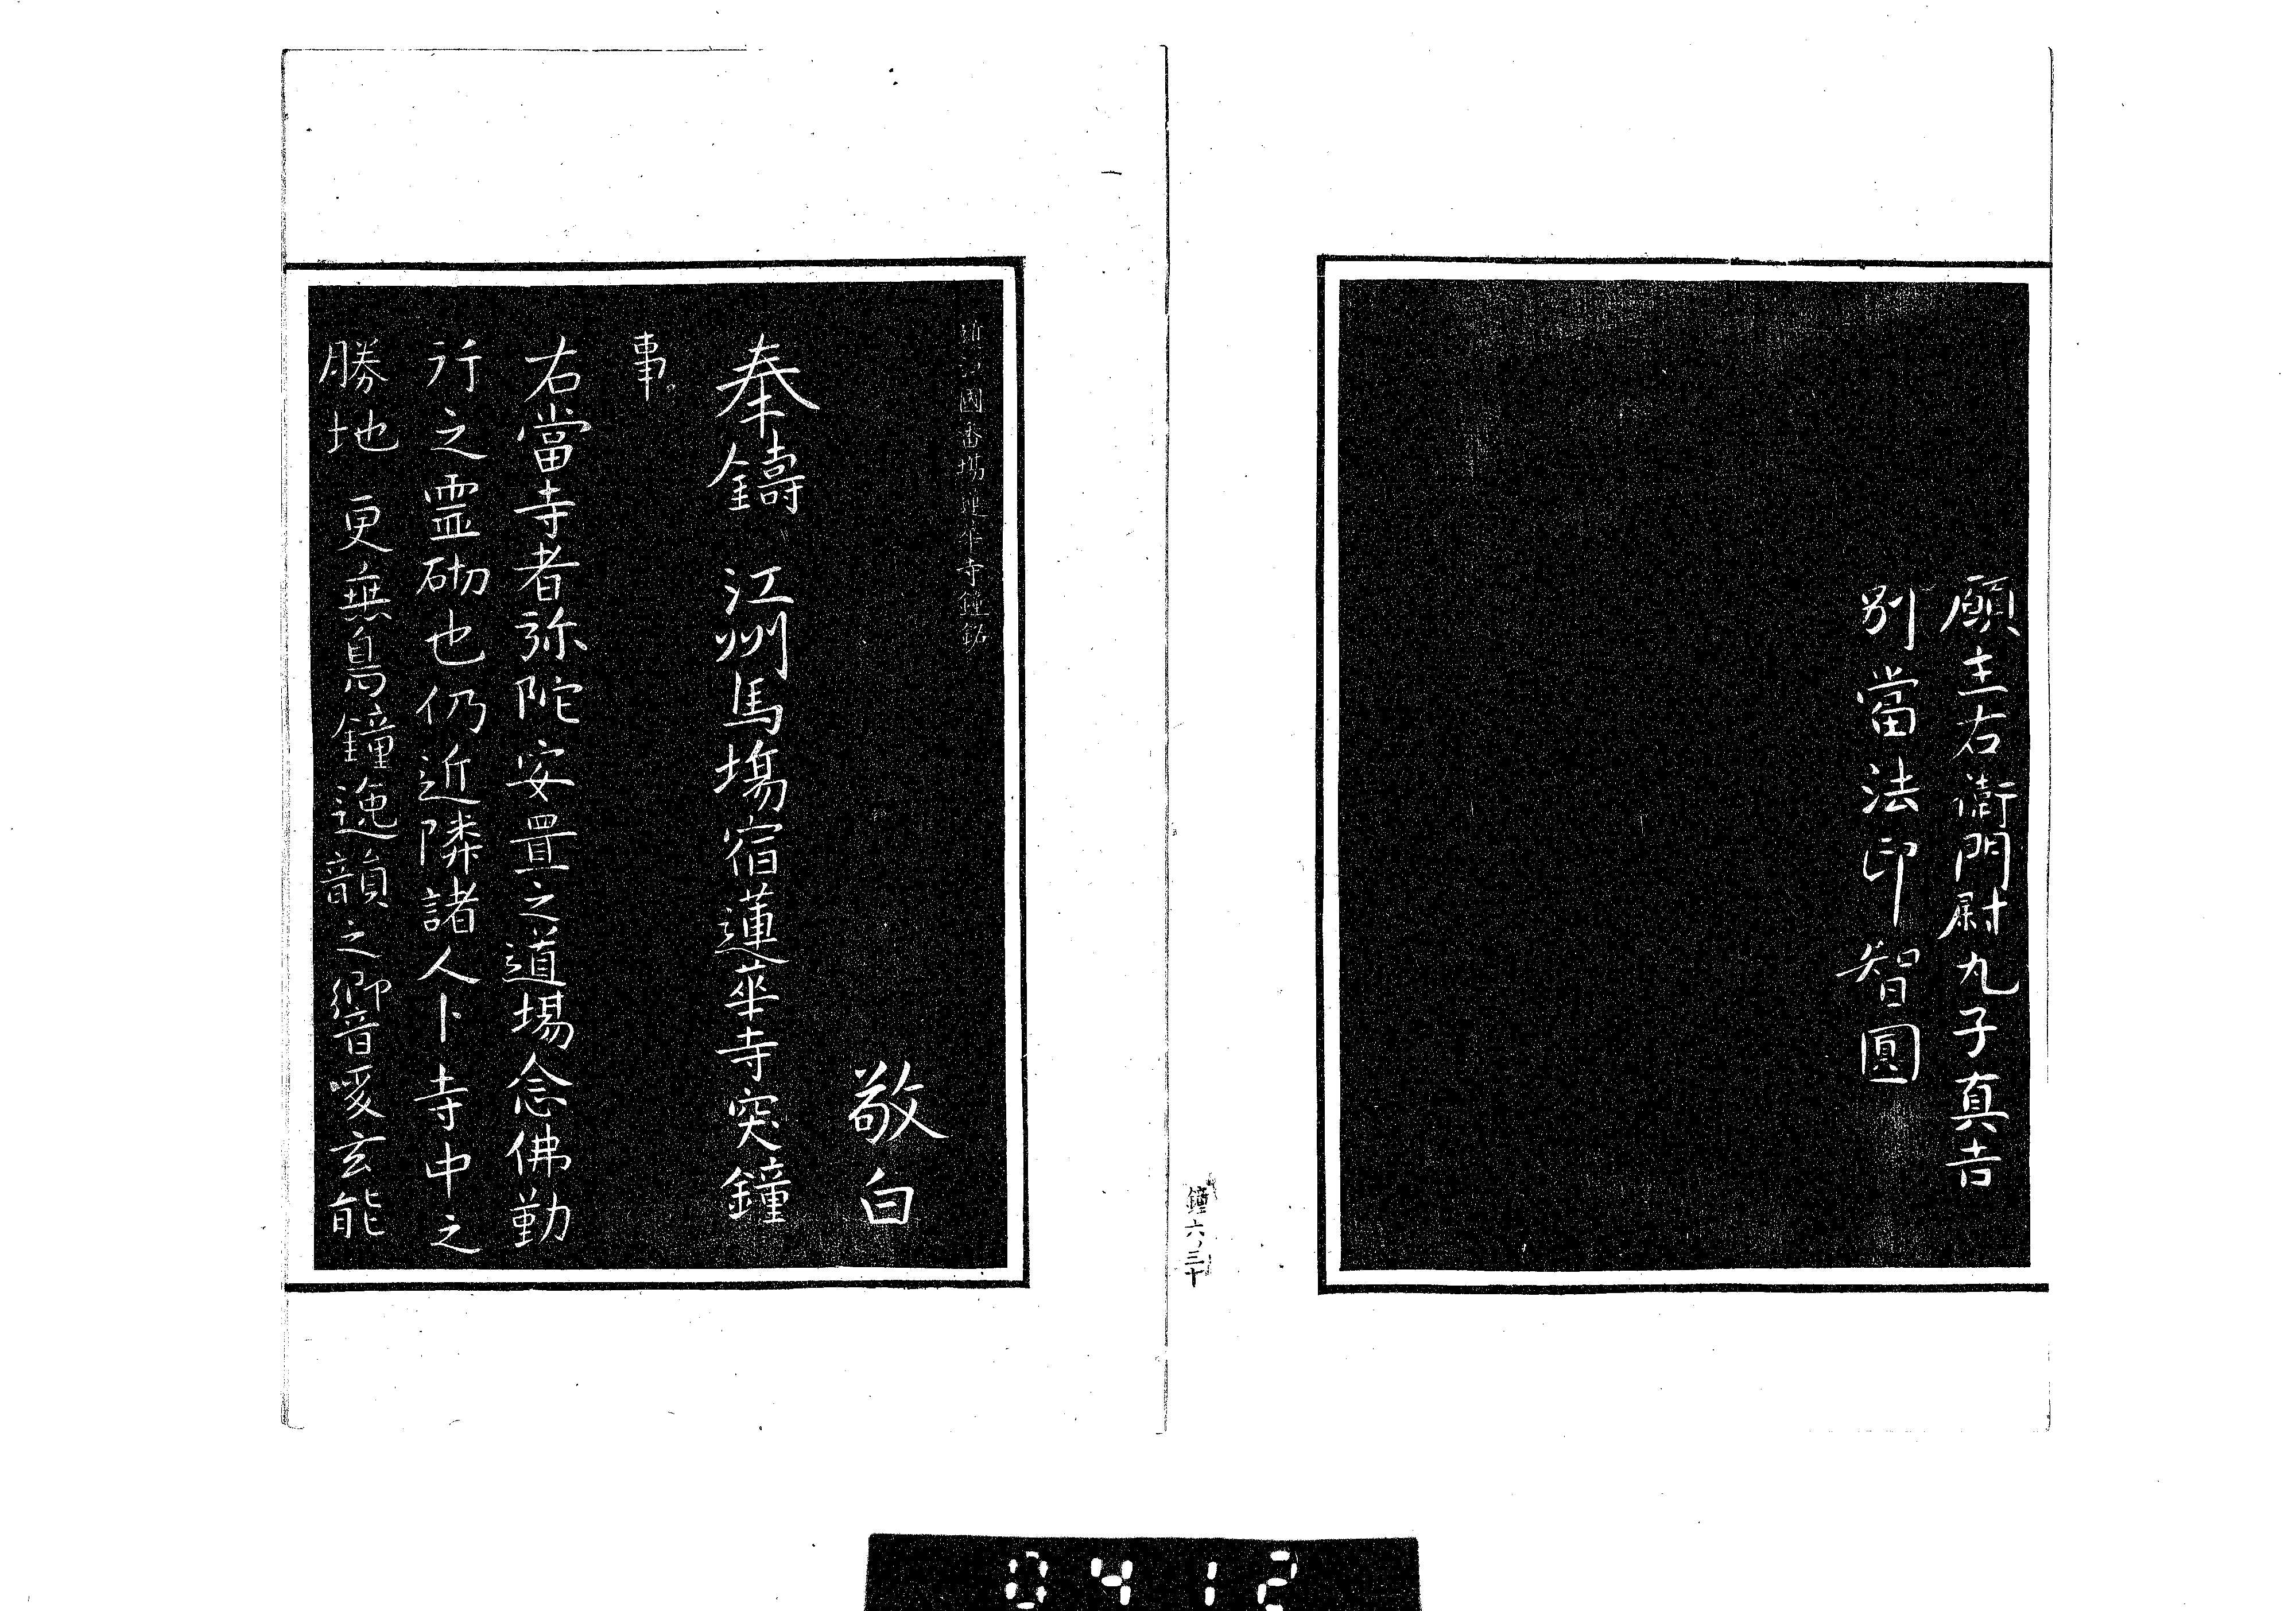 願主右衛門尉丸子真吉
別當法印智圓
鐘六ノ三十
近江國番場蓮華寺鐘銘
敬白
奉鑄 江州馬塲宿蓮華寺突鐘
事
右當寺者弥陀安置之道場念佛勤
行之霊砌也仍近隣諸人卜寺中之
勝地更無鳧鐘逸韻之響爰玄能
0412